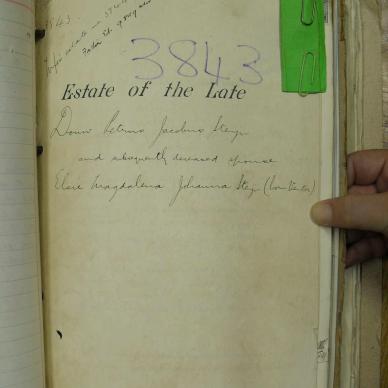 3843
3843
Estate of the Late
Douw Petrus Jacobus Steyn
and subsequently deceased spouse
Elsie Magdalena Johanna Steyn (born Venter)